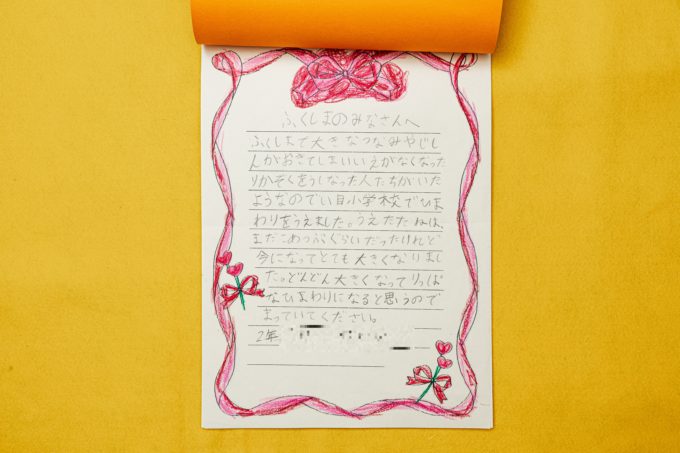 ふくしまのみなさんへ
ふくしまで大きなつなみやじし
んがおきてしまいいえがなくなった
りかぞくをうしなった人たちがいた
ようなのでい目小学校でひま
わりをうえました。うえたたねは、
まだこめつぶぐらいだったけれど
今になってとても大きくなりまし
た。どんどん大きくなってりっぱ
なひまわりになると思うので
まっていてください。
2年